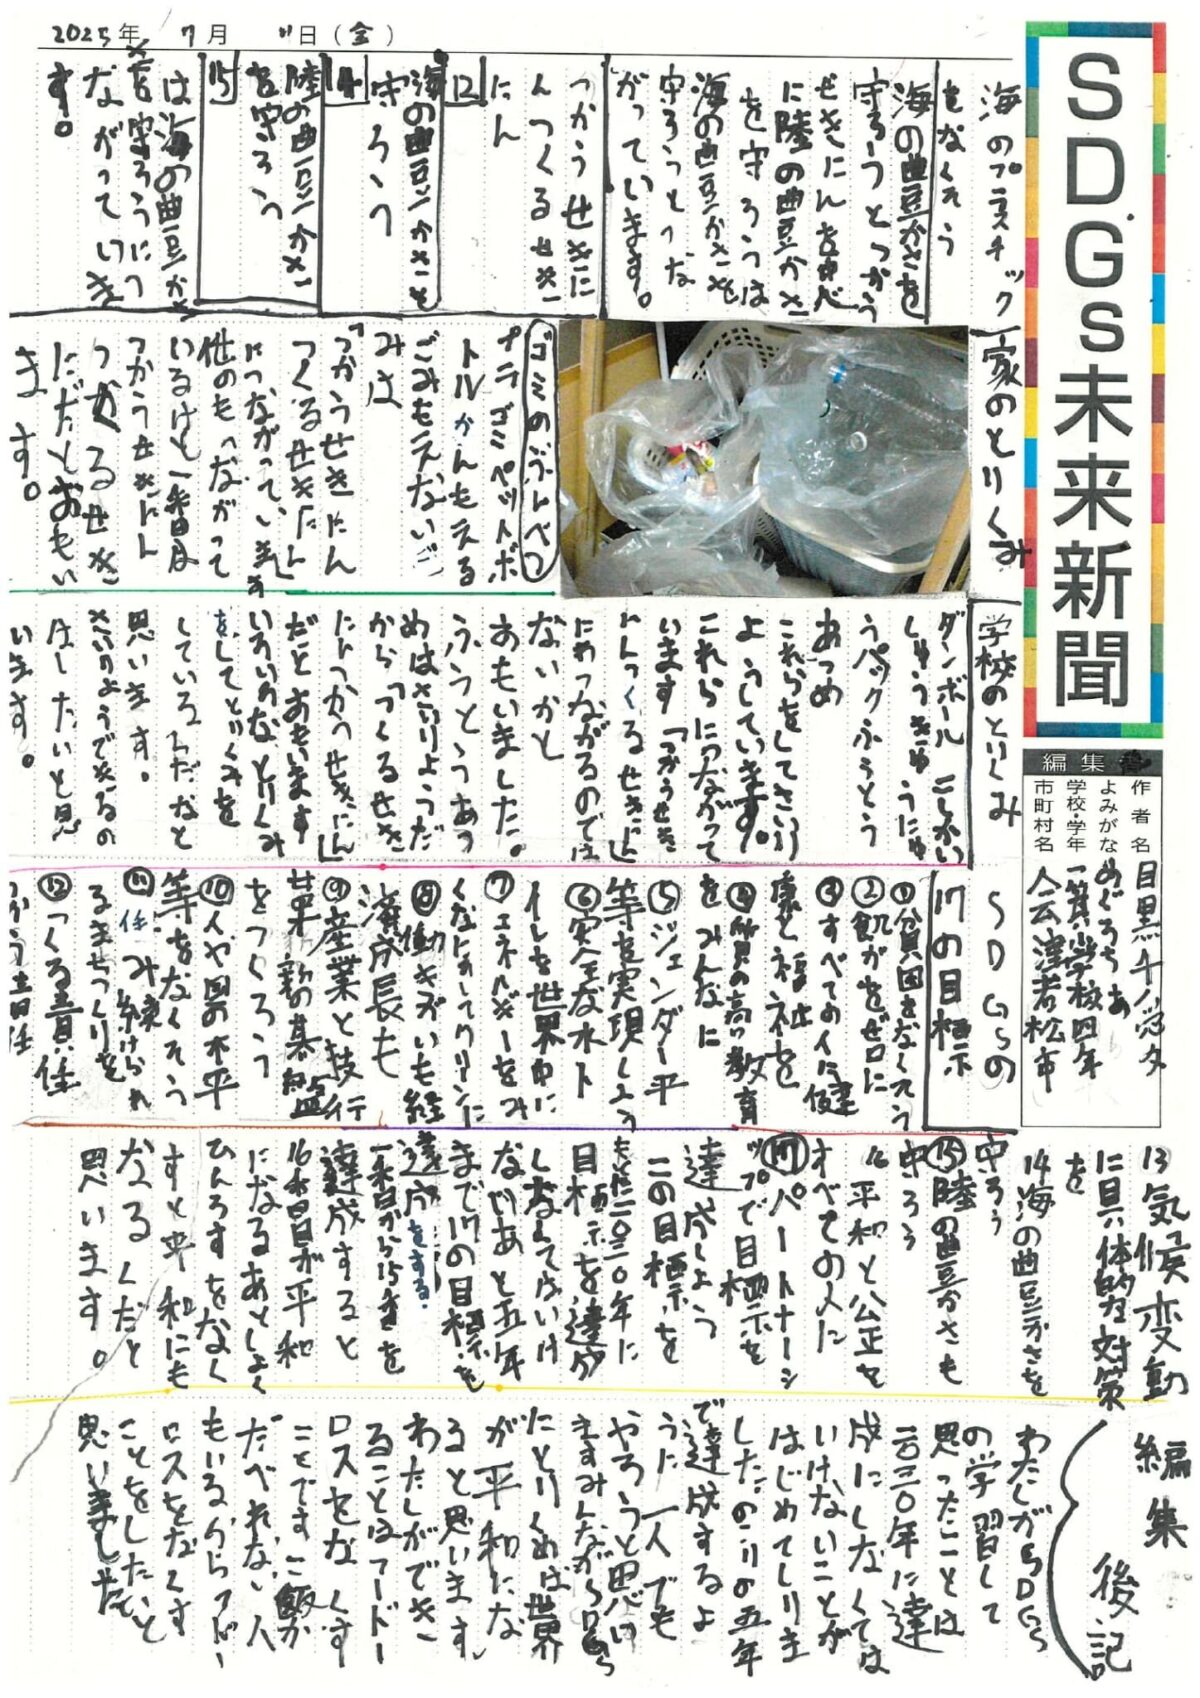 2025年 7月 11日(金)
SDGs未来新聞
編集
作者名 目黒
よみがな めぐろちあ
学校・学年 一箕小学校四年
市町村名 会津若松市
海のプラスチック
をなくそう
海の豊かさを
守ろうとつかう
せきにん
に陸の豊かさ
を守ろうは
海の豊かさを
守ろうとつな
がっています。
つかうせきに
んつくるせき
にん
12
海の豊かさを
守ろう
14
陸の豊かさ
を守ろう
15
は海の豊かさ
を守ろうにつ
ながっていき
す。
家のとりくみ
ゴミのぶんべつ
プラゴミペットボ
トルかんもえる
ごみもえないご
みは
「つかうせきにん
つくるせきにん」
につながっています
他のもつながって
いるけど一番は
つかうせきにん
つくるせき
にんだとおもい
ます。
学校のとりくみ
ダンボール
しゅうぎゅうにゅ
うパックふうとう
あつめ
これらをしてさいり
ようしています。
これらにつながって
います「つかうせき
にんつくるせきにん」
にわつながるのでは
ないかと
おもいました。
ふうとうあつ
めはさいりようだ
から「つくるせき
にんつかうせきにん」
だとおもいます
いろいろなとりくみ
をしてとりくみを
しているんだなと
思います。
さいりようできるの
はしたいと思
います。
SDGsの
17の目標
①貧困をなくそう
②飢がをゼロに
③すべての人に健
康と福祉を
④質の高い教育
をみんなに
⑤ジェンダー平
等を実現しよう
⑥安全な水ト
イレを世界中に
⑦エネルギーをみ
んなにそしてクリーンに
⑧働きがいも経
済成長も
⑨産業と技術
革新の基盤
をつくろう
⑩人や国の不平
等をなくそう
⑪住み続けられ
るまちづくりを
⑫つくる責任
つかう責任
13気候変動
に具体的な対策
を
14海の豊かさを
守ろう
⑮陸の豊かさも
守ろう
16平和と公正を
すべての人に
⑰パートナーシ
ップで目標を
達成しよう
この目標を
二〇三〇年に
目標を達成
しなくてはいけ
ないあと五年
まで17の目標を
達成をする。
一番から15番を
達成すると
16番が平和
になるあとしょく
ひんろすをなく
すと平和にも
なるくだと
思います。
編集後記
わたしがSDGs
の学習して
思ったことは
二〇三〇年に達
成にしなくては
いけないことが
はじめてしりま
したのこりの五年
で達成するよ
うに一人でも
やろうと思い
ますみんながSDGs
たとりくめば世界
が平和にな
ると思います。
わたしができ
ることはフードー
ロスをなくす
ことですご飯が
たべれない人
もいるからフドー
ロスをなくす
ことをしたいと
思いました